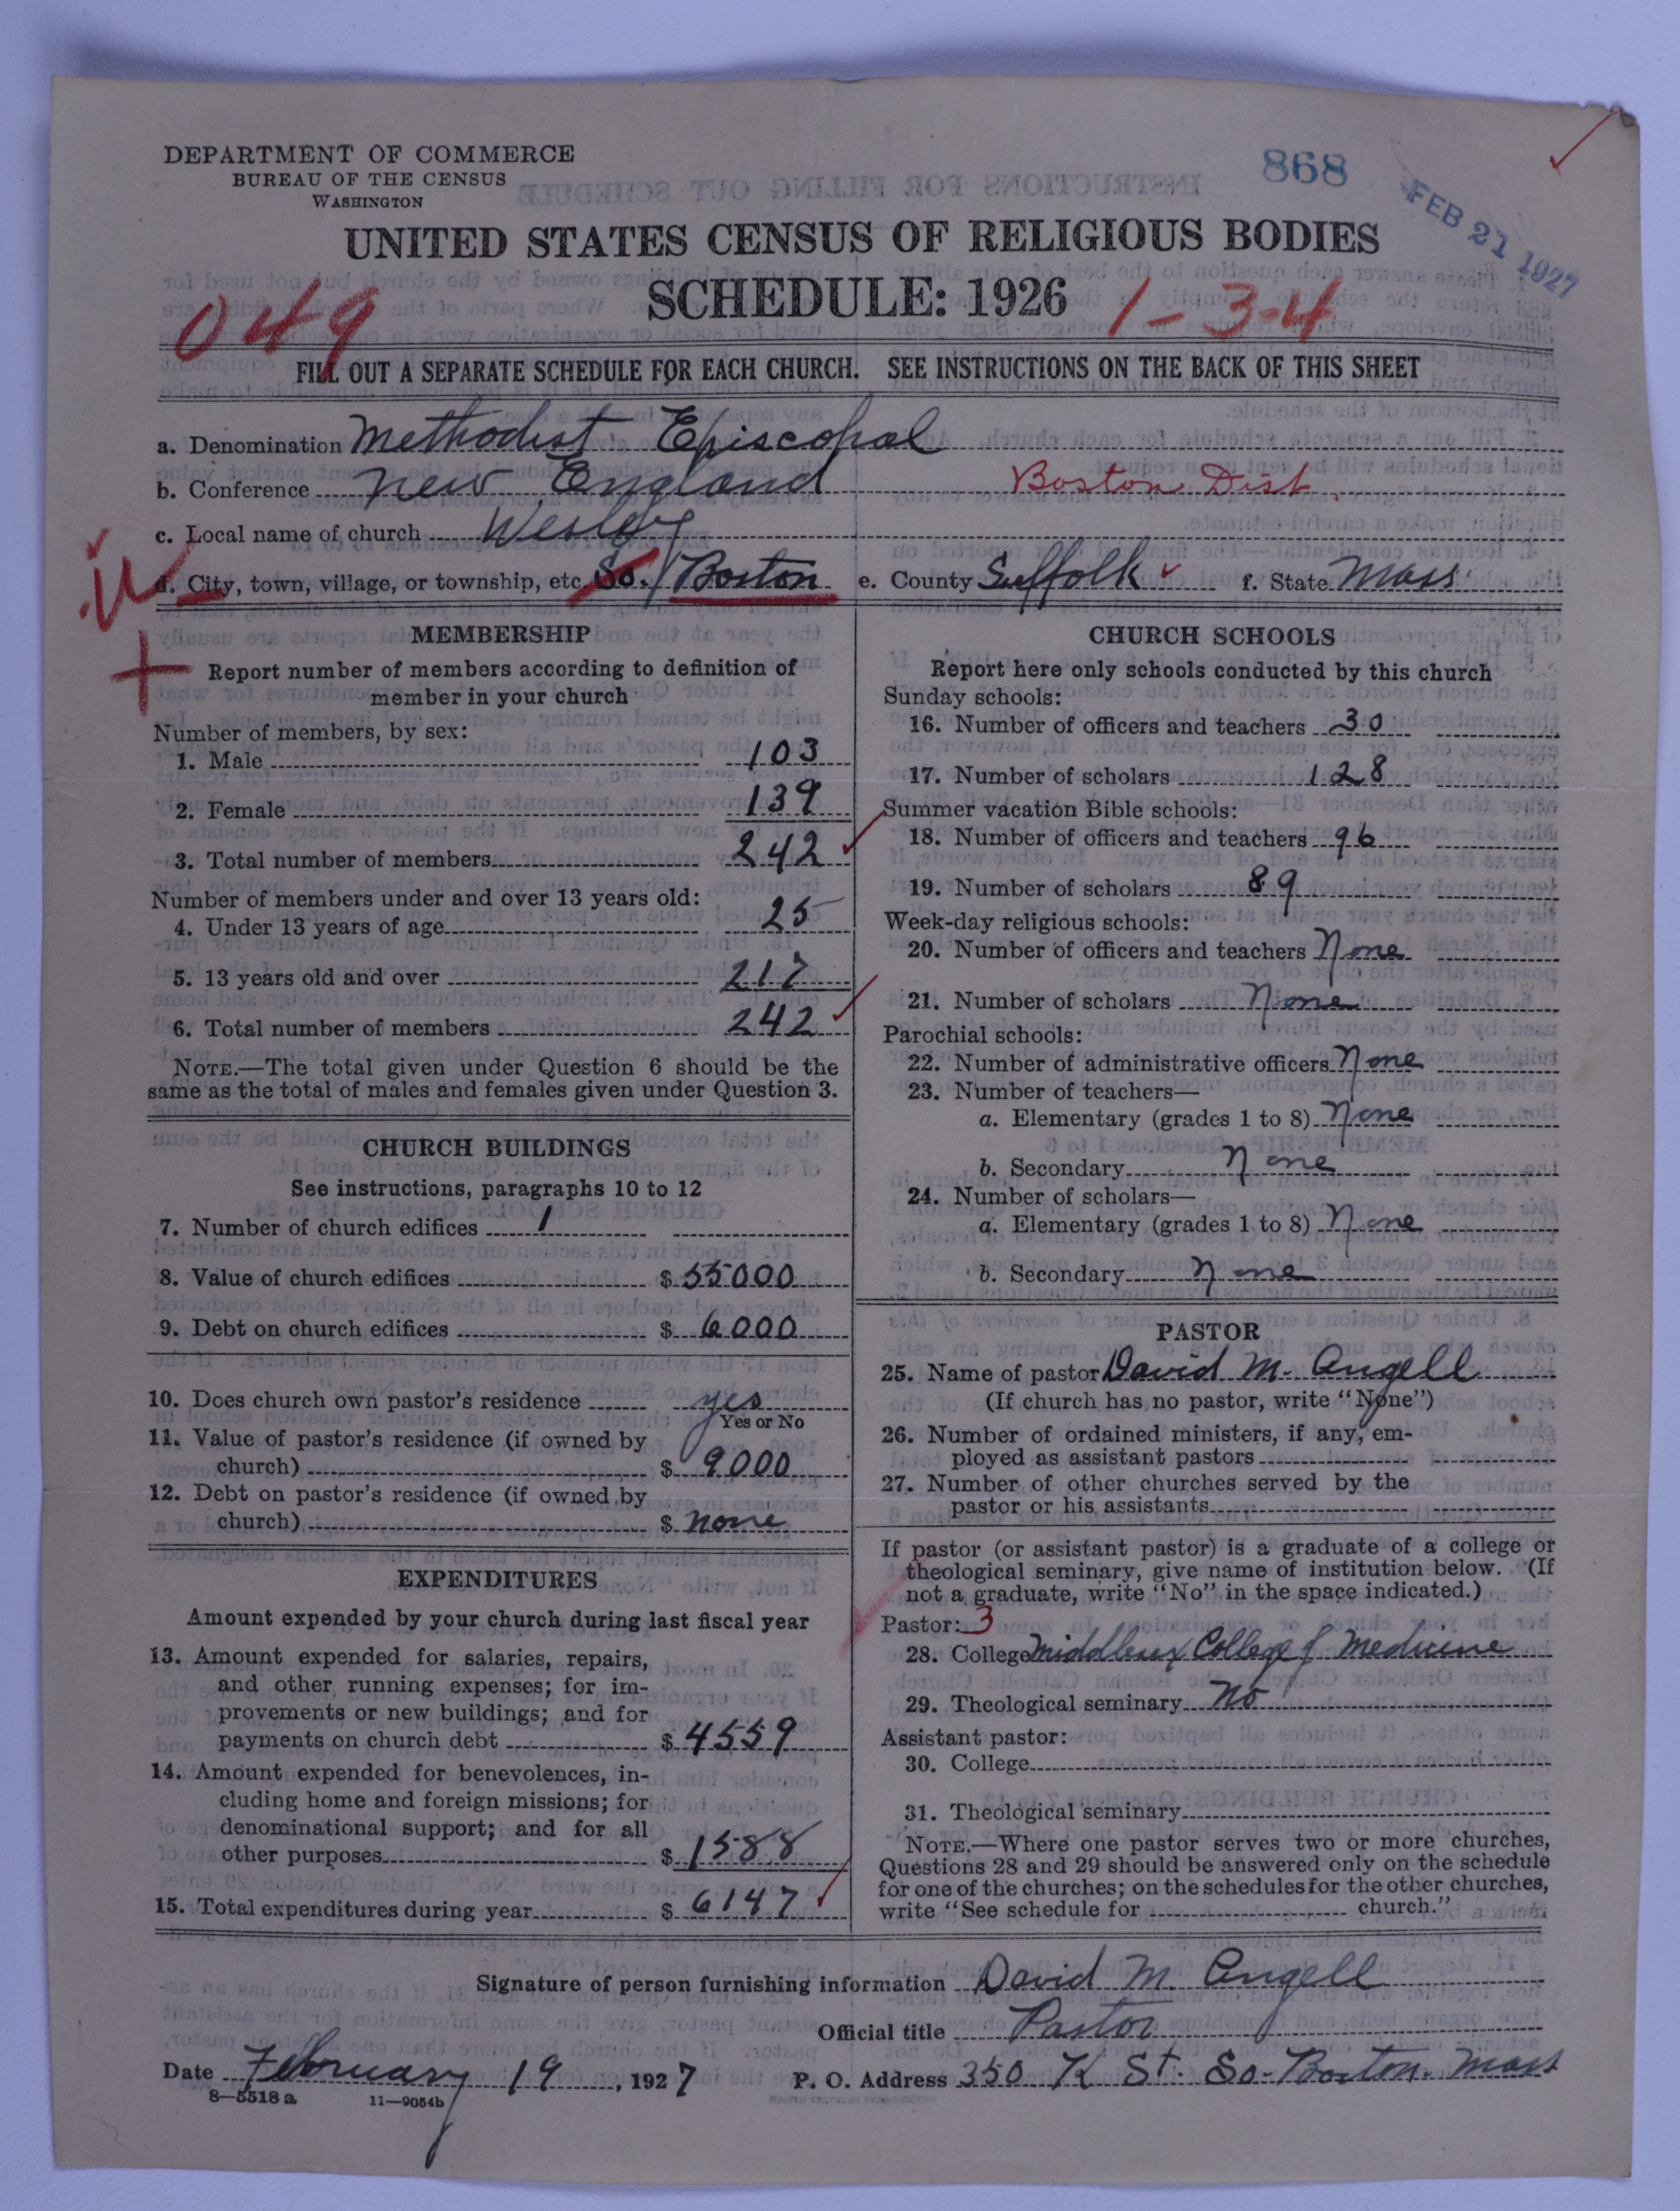 DEPARTMENT OF COMMERCE
BUREAU OF THE CENSUS
WASHINGTON
868
FEB 21 1927
UNITED STATES CENSUS OF RELIGIOUS BODIES
SCHEDULE: 1926
049
1-3-4
FILL OUT A SEPARATE SCHEDULE FOR EACH CHURCH. SEE INSTRUCTIONS ON THE BACK OF THIS SHEET
a. Denomination Methodist Episcopal
b. Conference New England Boston Dist.
c. Local name of church Wesley
d. City, town, village, or township, etc. So. Boston e. County Suffolk f. State Mass.
MEMBERSHIP
Report number of members according to definition of
member in your church
Number of members, by sex:
1. Male 103
2. Female 139
3. Total number of members 242
Number of members under and over 13 years old:
4. Under 13 years of age 25
5. 13 years old and over 217
6. Total number of members 242
NOTE.—The total given under Question 6 should be the
same as the total of males and females given under Question 3.
CHURCH BUILDINGS
See instructions, paragraphs 10 to 12
7. Number of church edifices 1
8. Value of church edifices $ 55000
9. Debt on church edifices $ 6000
10. Does church own pastor's residence yes
Yes or No
11. Value of pastor's residence (if owned by
church) $ 9000
12. Debt on pastor's residence (if owned by
church) $ none
EXPENDITURES
Amount expended by your church during last fiscal year
13. Amount expended for salaries, repairs,
and other running expenses; for im-
provements or new buildings; and for
payments on church debt $ 4559
14. Amount expended for benevolences, in-
cluding home and foreign missions; for
denominational support; and for all
other purposes $ 1588
15. Total expenditures during year $ 6147
CHURCH SCHOOLS
Report here only schools conducted by this church
Sunday schools:
16. Number of officers and teachers 30
17. Number of scholars 128
Summer vacation Bible schools:
18. Number of officers and teachers 96
19. Number of scholars 89
Week-day religious schools:
20. Number of officers and teachers None
21. Number of scholars None
Parochial schools:
22. Number of administrative officers None
23. Number of teachers—
a. Elementary (grades 1 to 8) None
b. Secondary None
24. Number of scholars—
a. Elementary (grades 1 to 8) None
b. Secondary None
PASTOR
25. Name of pastor David M. Angell
(If church has no pastor, write "None")
26. Number of ordained ministers, if any, em-
ployed as assistant pastors
27. Number of other churches served by the
pastor or his assistants
If pastor (or assistant pastor) is a graduate of a college or
theological seminary, give name of institution below. (If
not a graduate, write "No" in the space indicated.)
Pastor: 3
28. College Middlesex College of Medicine
29. Theological seminary No
Assistant pastor:
30. College
31. Theological seminary
NOTE.—Where one pastor serves two or more churches,
Questions 28 and 29 should be answered only on the schedule
for one of the churches; on the schedules for the other churches,
write "See schedule for church."
Signature of person furnishing information David M. Angell
Official title Pastor
Date February 19, 1927 P. O. Address 350 K St. So. Boston. Mass
8—5518a 11—9054b